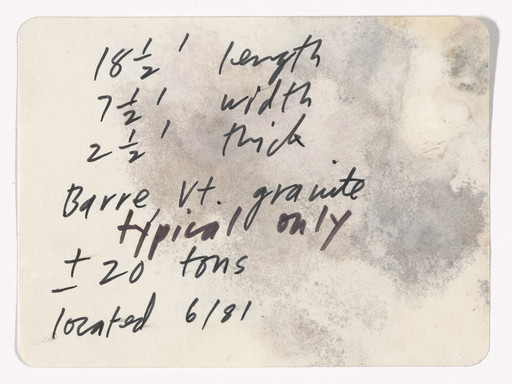 18 1/2' length
7 1/2' width
2 1/2' thick
Barre Vt. granite
typical only
± 20 tons
located 6/81